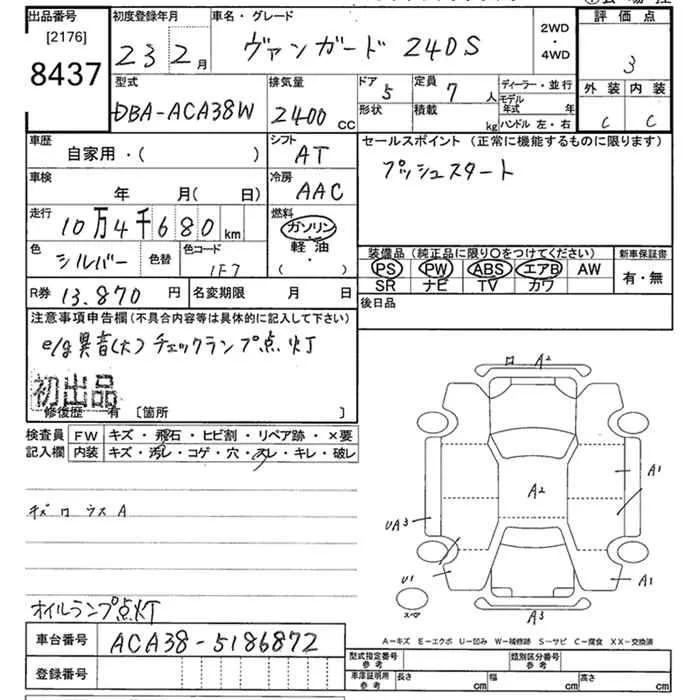 出品番号
[2176]
8437
初度登録年月
23 2月
車名・グレード
ヴァンガード 240S
2WD
・
4WD
評価点
3
型式
DBA-ACA38W
排気量
2400 cc
ドア 5
形状
定員 7 人
積載 kg
ディーラー・並行
モデル年式 年
ハンドル 左・右
外装 内装
C C
車歴
自家用・( )
シフト
AT
セールスポイント (正常に機能するものに限ります)
プッシュスタート
車検
年 月( 日)
冷房
AAC
走行
10万4千680 km
燃料
ガソリン
軽油
( ・ )
色
シルバー
色替
色コード
1F7
装備品 (純正品に限り○をつけてください)
PS PW ABS エアB AW
SR ナビ TV カワ
新車保証書
有・無
R券 13.870 円
名変期限 月 日
後日品
注意事項申告欄 (不具合内容等は具体的に記入して下さい)
e/g異音(大) チェックランプ点灯
初出品
修復歴 有 [箇所 ]
検査員
記入欄
FW キズ・飛石・ヒビ割・リペア跡・×要
内装 キズ・汚レ・コゲ・穴・スレ・キレ・破レ
オイルランプ点灯
A2
A1
A2
UA3
U1
A1
A3
スペア
A-キズ E-エクボ U-凹み W-補修跡 S-サビ C-腐食 XX-交換済
車台番号 ACA38-5186872
登録番号
型式指定番号
参考
類別区分番号
参考
車庫証明用
参考
長さ cm 幅 cm 高さ cm